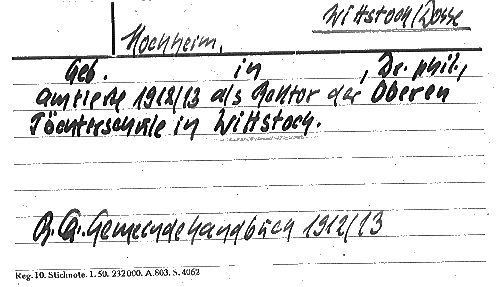 Wittstock/Dosse
Hochheim,
Geb. in , Dr. phil.,
amtierte 1912/13 als Rektor der Oberen
Töchterschule in Wittstock.
Gemeindehandbuch 1912/13
Reg. 10. Stichnote. 1. 50. 232000. A. 803. S. 4062